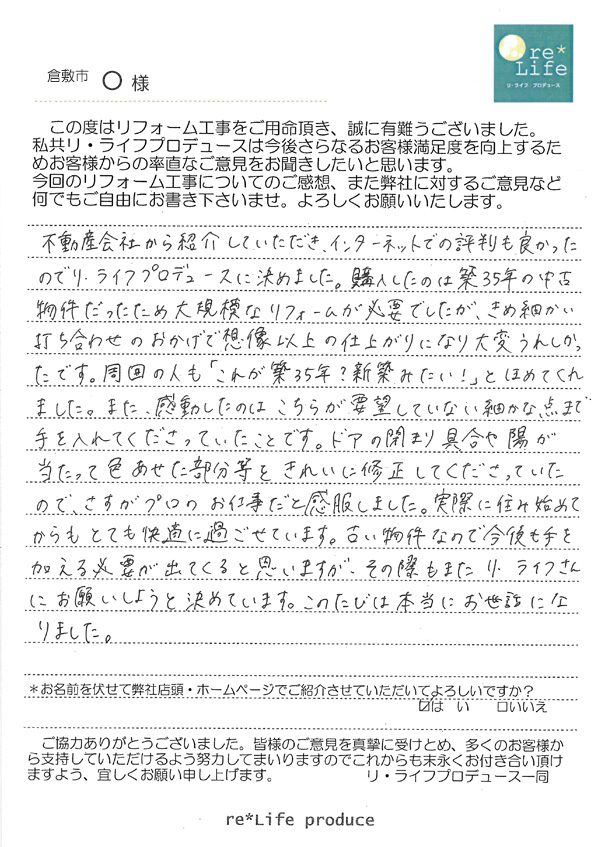 re*
Life
リ・ライフ プロデュース
倉敷市 〇 様
この度はリフォーム工事をご用命頂き、誠に有難うございました。
私共リ・ライフプロデュースは今後さらなるお客様満足度を向上するた
めお客様からの率直なご意見をお聞きしたいと思います。
今回のリフォーム工事についてのご感想、また弊社に対するご意見など
何でもご自由にお書き下さいませ。よろしくお願いいたします。
不動産会社から紹介していただき、インターネットでの評判も良かった
のでリ・ライフプロデュースに決めました。購入したのは築35年の中古
物件だったため大規模なリフォームが必要でしたが、きめ細かい
打ち合わせのおかげで想像以上の仕上がりになり大変うれしかっ
たです。周囲の人も「これが築35年？新築みたい！」とほめてくれ
ました。また、感動したのはこちらが要望していない細かな点まで
手を入れてくださっていたことです。ドアの閉まり具合や陽が
当たって色あせた部分等をきれいに修正してくださっていた
ので、さすがプロのお仕事だと感服しました。実際に住み始めて
からもとても快適に過ごせています。古い物件なので今後も手を
加える必要が出てくると思いますが、その際もまたリ・ライフさん
にお願いしようと決めています。このたびは本当にお世話にな
りました。
＊お名前を伏せて弊社店頭・ホームページでご紹介させていただいてよろしいですか？
☑は い □いいえ
ご協力ありがとうございました。皆様のご意見を真摯に受けとめ、多くのお客様か
ら支持していただけるよう努力してまいりますのでこれからも末永くお付き合い頂け
ますよう、宜しくお願い申し上げます。 リ・ライフプロデュース一同
re*Life produce